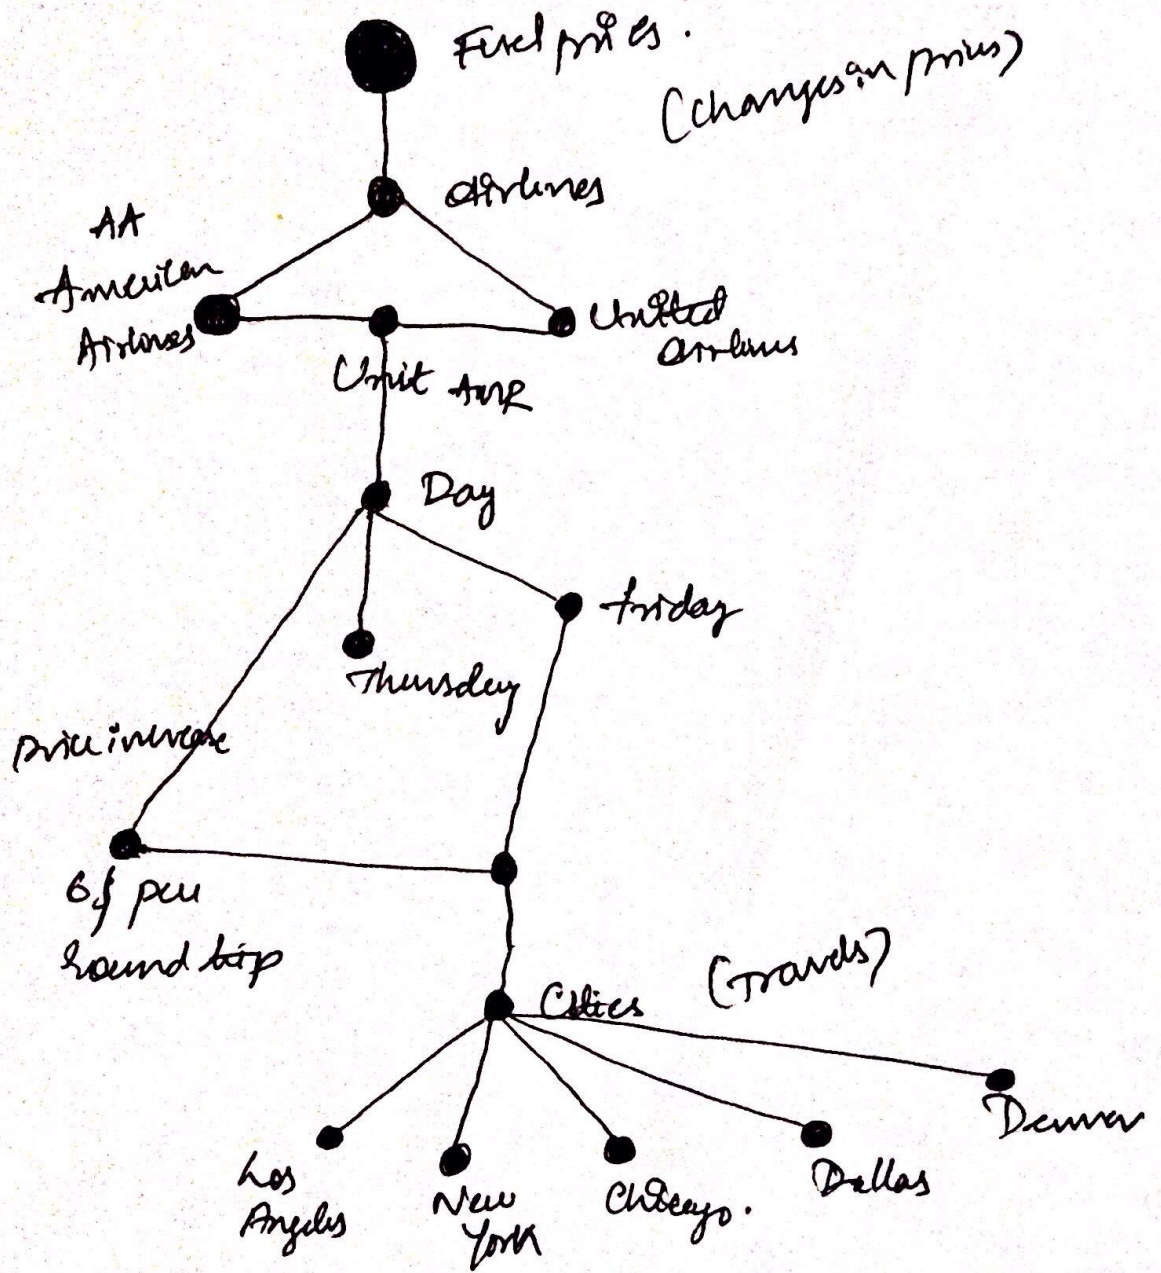 Fuel prices.
(changes in prices)
Airlines
AA
American
Airlines
United
Airlines
Unit AMR
Day
friday
Thursday
price increase
6$ per
round trip
Cities
(Travels)
Denver
Los
Angeles
New
York
Chicago.
Dallas